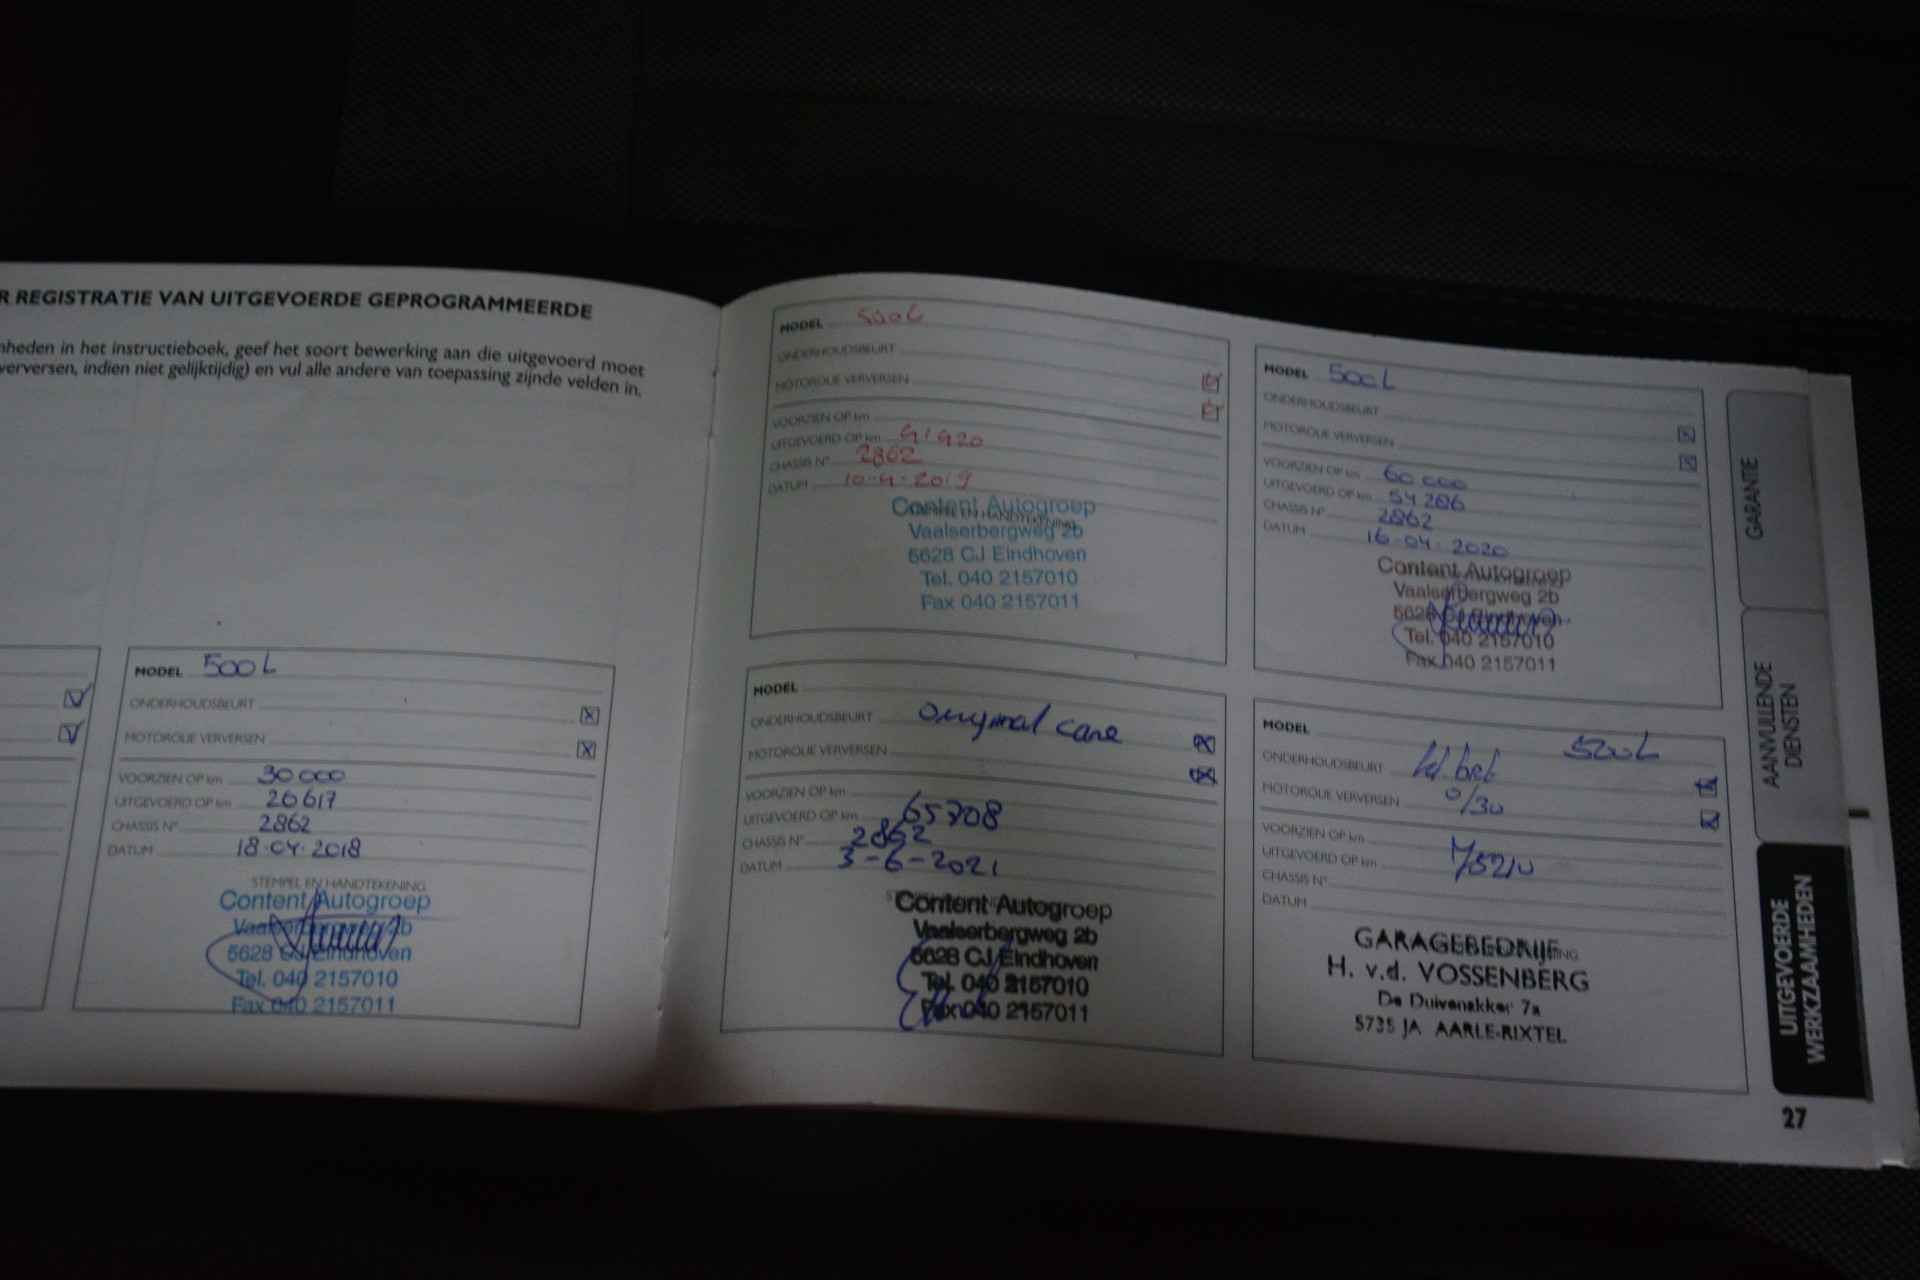 R REGISTRATIE VAN UITGEVOERDE GEPROGRAMMEERDE
nheden in het instructieboek, geef het soort bewerking aan die uitgevoerd moet
verversen, indien niet gelijktijdig) en vul alle andere van toepassing zijnde velden in.
MODEL 500L
ONDERHOUDSBEURT
MOTOROLIE VERVERSEN
VOORZIEN OP km 30 000
UITGEVOERD OP km 26617
CHASSIS N° 2862
DATUM 18-04-2018
STEMPEL EN HANDTEKENING
Content Autogroep
Vaalserbergweg 2b
5628 CJ Eindhoven
Tel. 040 2157010
Fax 040 2157011
MODEL 500L
ONDERHOUDSBEURT
MOTOROLIE VERVERSEN
VOORZIEN OP km
UITGEVOERD OP km 41420
CHASSIS N° 2862
DATUM 10-4-2019
Content Autogroep
Vaalserbergweg 2b
5628 CJ Eindhoven
Tel. 040 2157010
Fax 040 2157011
MODEL 500L
ONDERHOUDSBEURT
MOTOROLIE VERVERSEN
VOORZIEN OP km 60 000
UITGEVOERD OP km 54 286
CHASSIS N° 2862
DATUM 16-04-2020
Content Autogroep
Vaalserbergweg 2b
5628 CJ Eindhoven
Tel. 040 2157010
Fax 040 2157011
MODEL
ONDERHOUDSBEURT Original care
MOTOROLIE VERVERSEN
VOORZIEN OP km
UITGEVOERD OP km 65708
CHASSIS N° 2862
DATUM 3-6-2021
Content Autogroep
Vaalserbergweg 2b
5628 CJ Eindhoven
Tel. 040 2157010
Fax 040 2157011
MODEL 500L
ONDERHOUDSBEURT
MOTOROLIE VERVERSEN 0/30
VOORZIEN OP km
UITGEVOERD OP km
CHASSIS N°
DATUM
GARAGEBEDRIJF
H. v.d. VOSSENBERG
De Duivenakker 7a
5735 JA AARLE-RIXTEL
GARANTIE
AANVULLENDE
DIENSTEN
UITGEVOERDE
WERKZAAMHEDEN
27